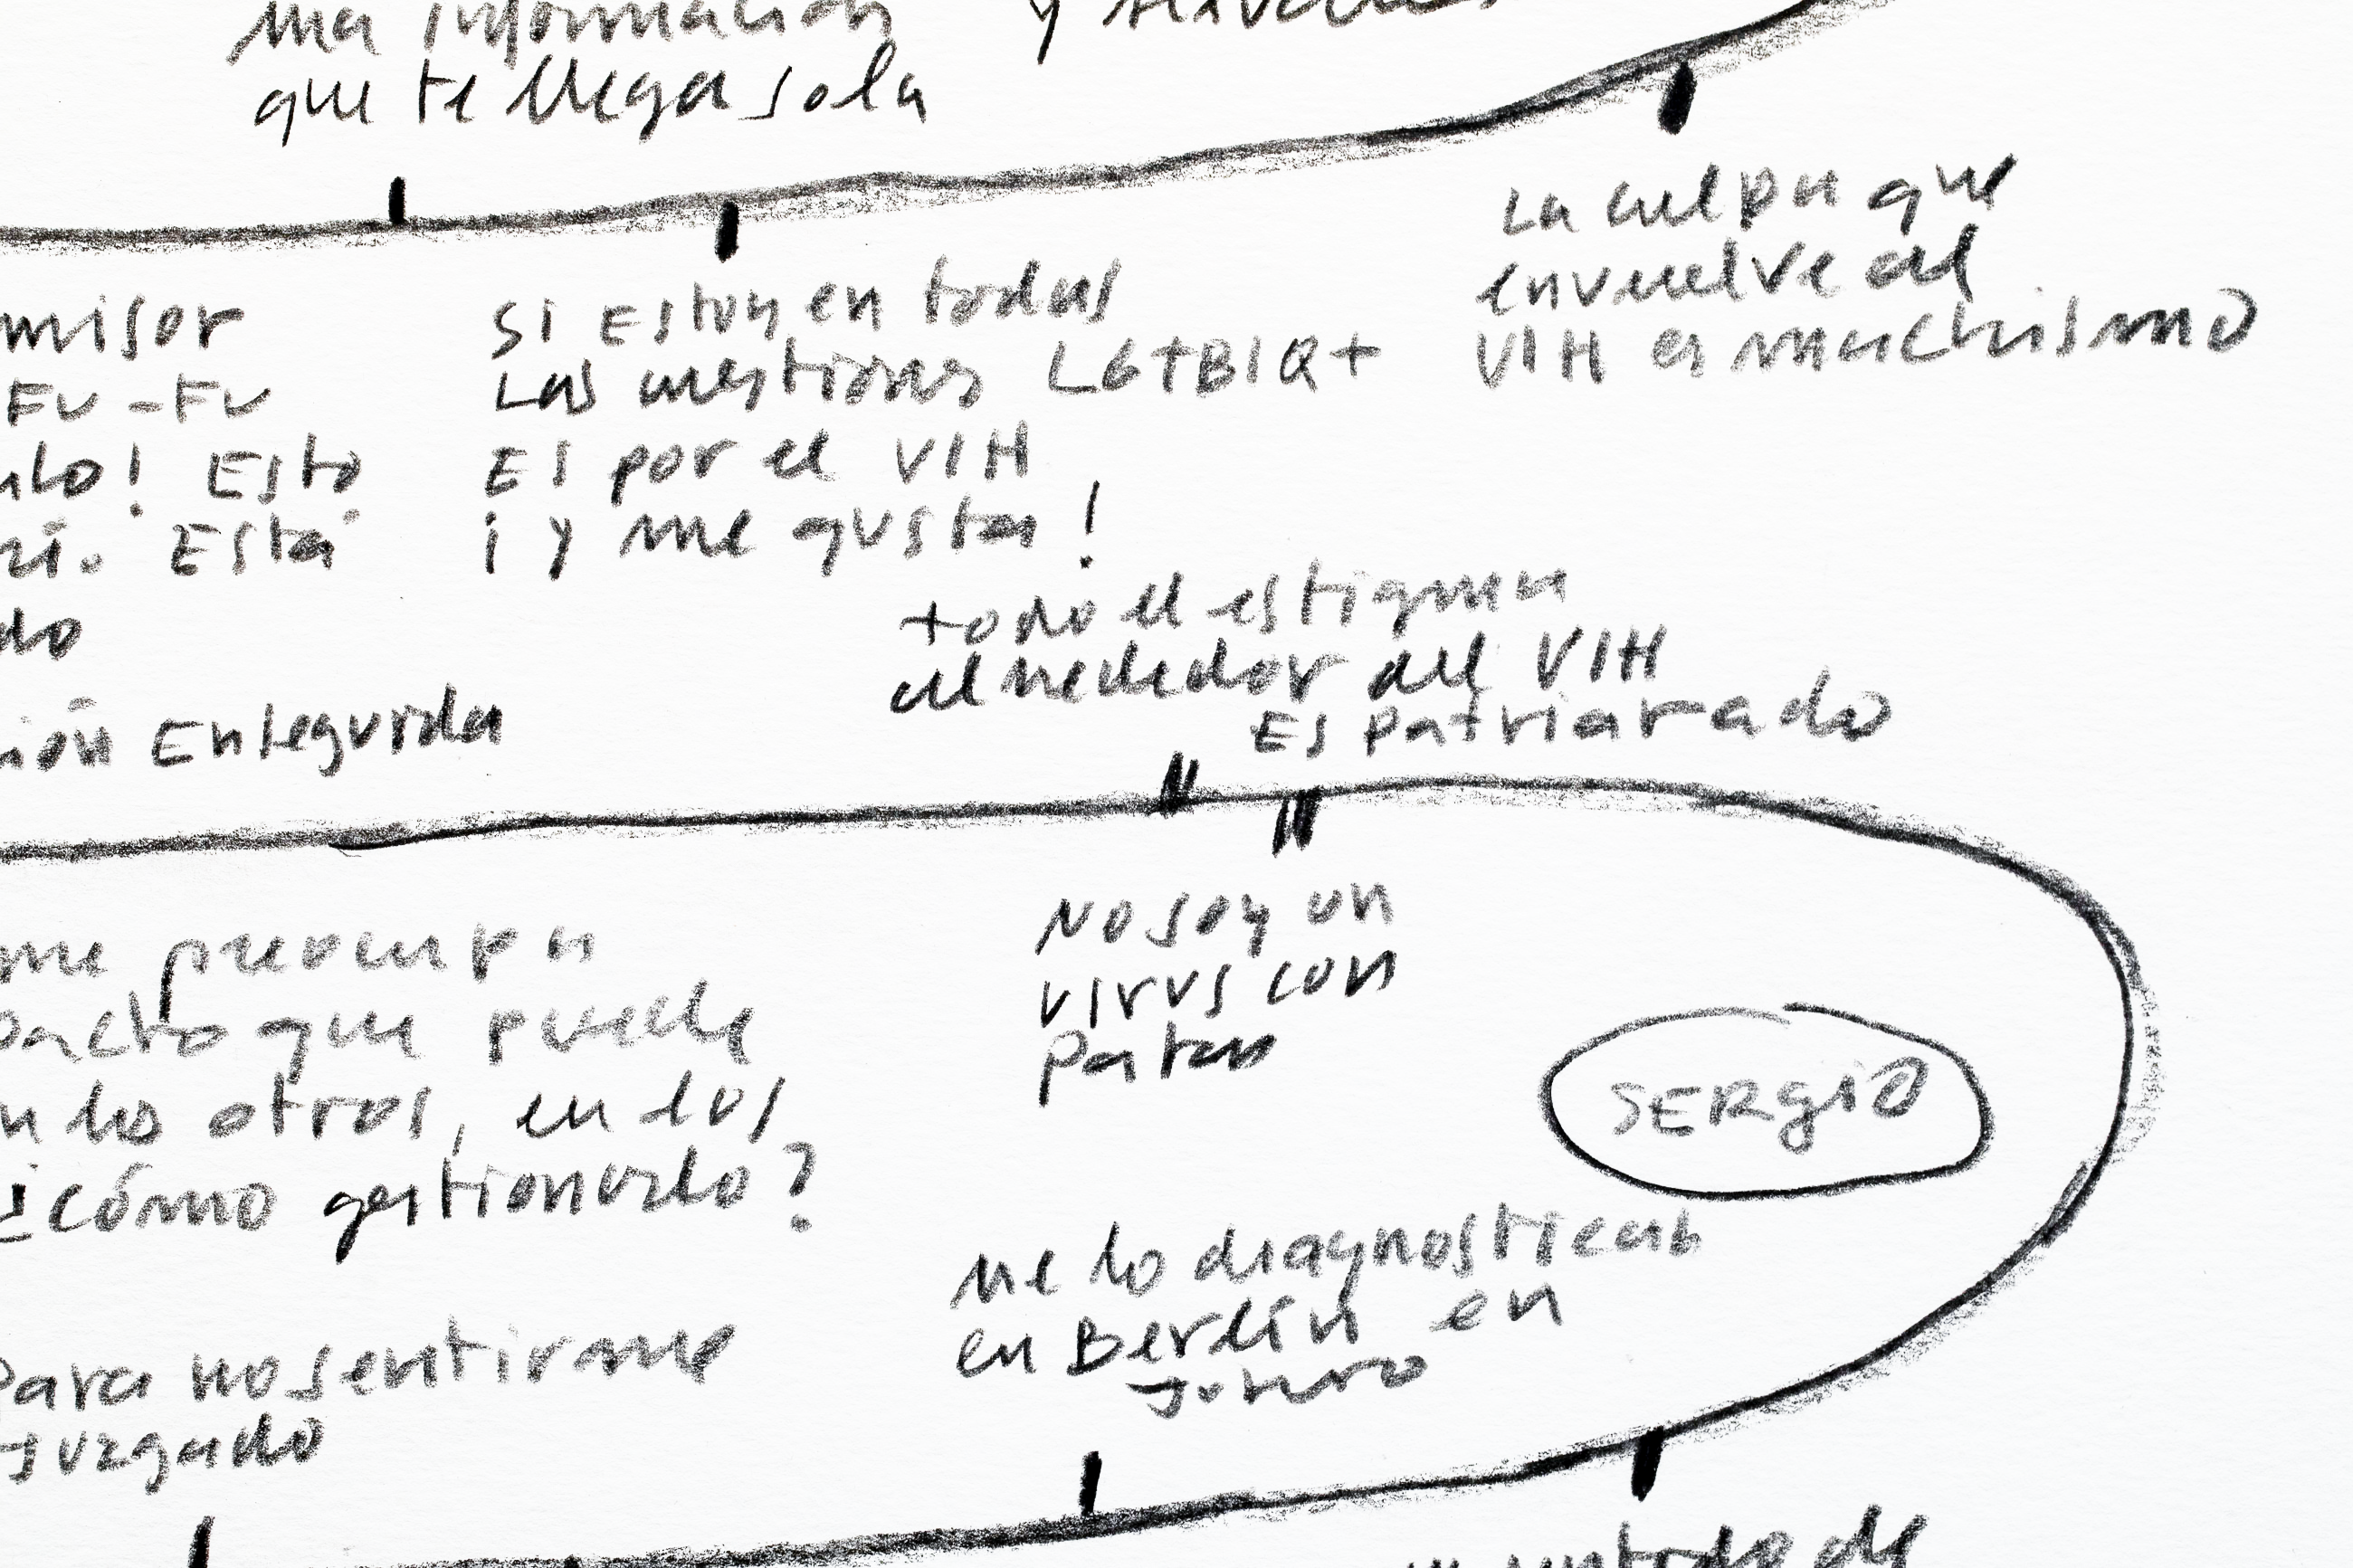 una información y
que te llega sola
La culpa que
envuelve al
VIH es machismo
misor
Fu-Fu
ulo! Esto
Está
do
ión Enseguida
Si Estoy en todas
Las cuestiones LGTBIQ+
Es por el VIH
¡y me gusta!
todo el estigma
alrededor del VIH
Es Patriarcado
me preocupa
pacto que puede
n los otros, en los
¿cómo gestionarlo?
Para no sentirme
Juzgado
No soy un
virus con
Patas
SERgio
me lo diagnostican
en Berlín en